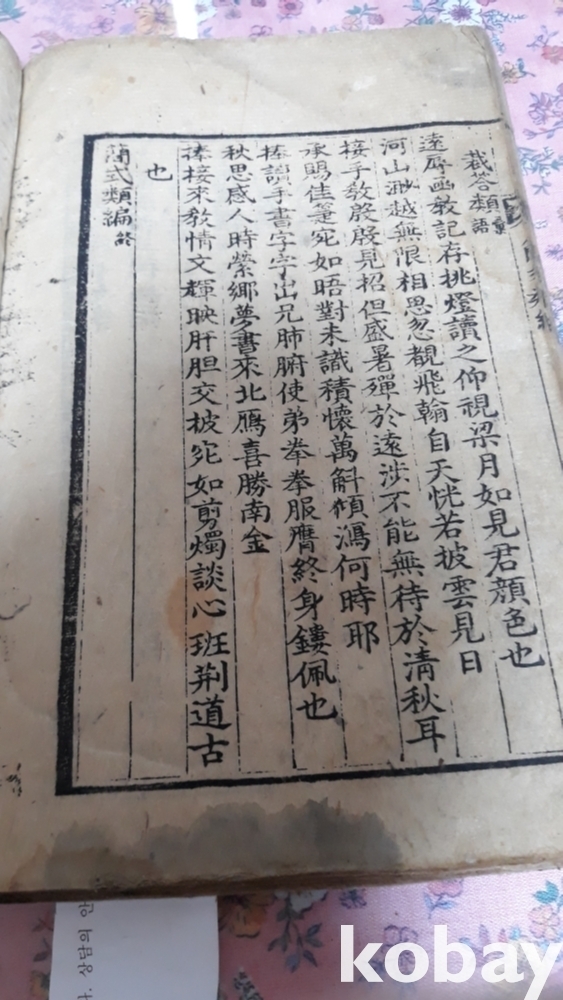 裁答類彙語
遠辱幽教記存挑燈讀之仰視梁月如見君顏色也
河山渺越無限相思忽覩飛翰自天恍若披雲見日
接手教殷殷見招但盛暑殫於遠涉不能無待於清秋耳
承賜佳箑宛如晤對未識積懷萬斛傾瀉何時耶
捧讀手書字字出兄肺腑使弟拳拳服膺終身鏤佩也
秋思感人時縈鄉夢書來北鴈喜勝南金
捧接來教情文輝映肝胆交披宛如剪燭談心班荆道古
也
簡式類編終
상담의 안
kobay